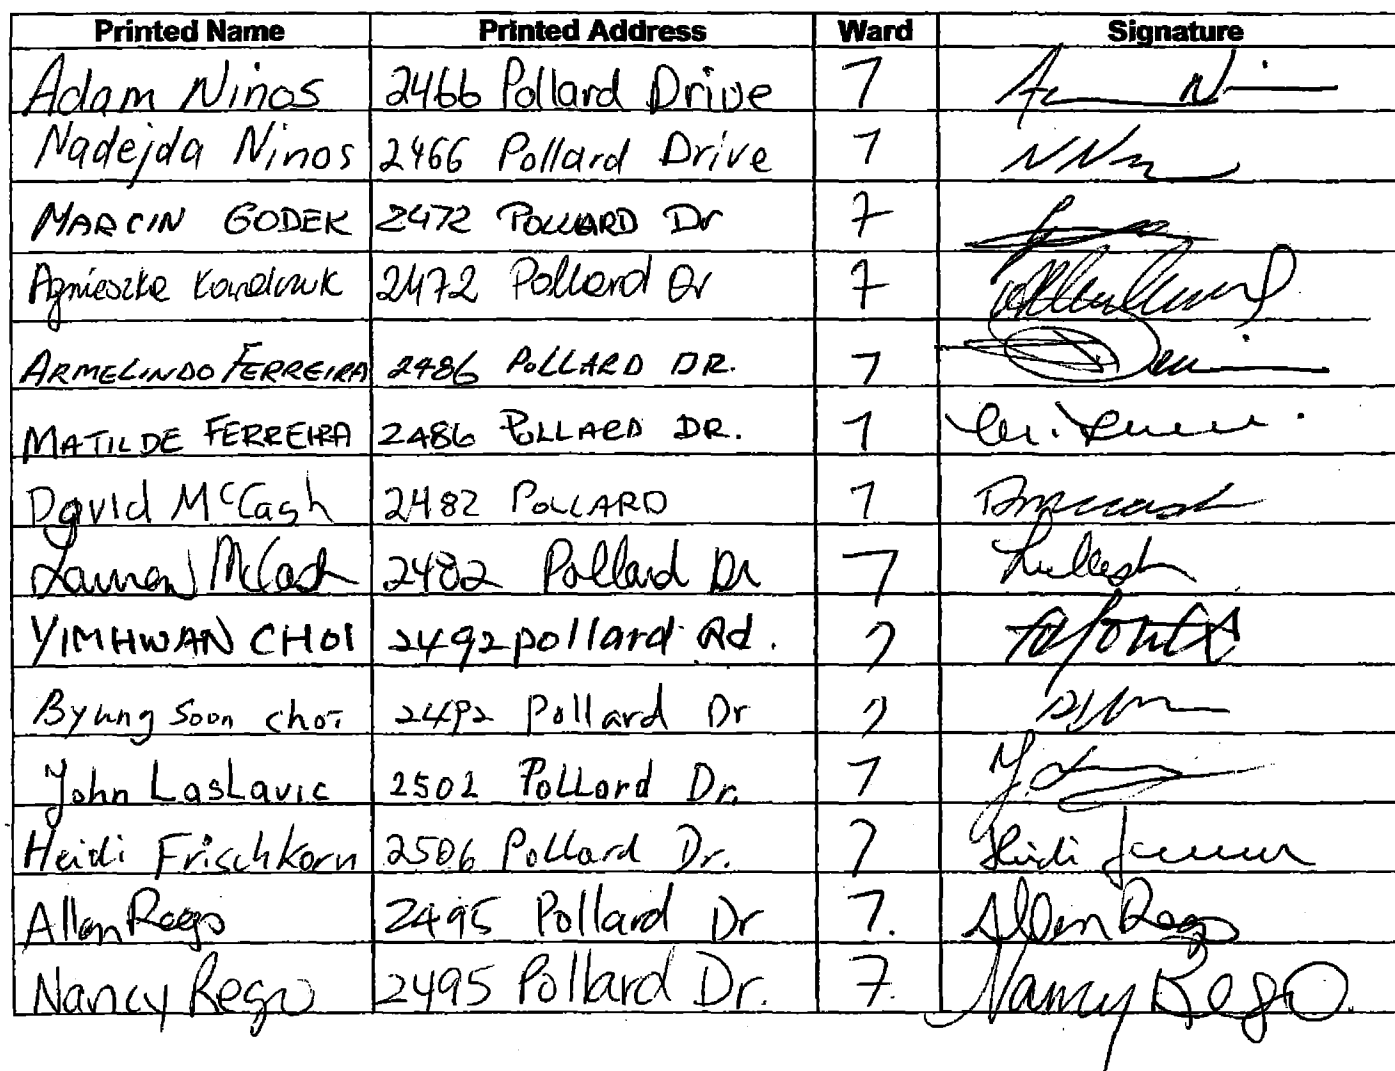 Printed Name Printed Address Ward Signature
Adam Ninos 2466 Pollard Drive 7
Nadejda Ninos 2466 Pollard Drive 7
MARCIN GODEK 2472 POLLARD Dr 7
Agnieszka 2472 Pollard Dr 7
ARMELINDO FERREIRA 2486 POLLARD DR. 7
MATILDE FERREIRA 2486 POLLARD DR. 7
David McCash 2482 POLLARD 7
Lauren McCash 2482 Pollard Dr 7
YIMHWAN CHOI 2492 pollard Rd. 7
Byung Soon choi 2492 pollard Dr 7
John LasLavic 2502 PoLLard Dr. 7
Heidi Frischkorn 2506 Pollard Dr. 7 Heidi
Allen Rego 2495 Pollard Dr 7. Allen Rego
Nancy Rego 2495 Pollard Dr. 7. Nancy Rego